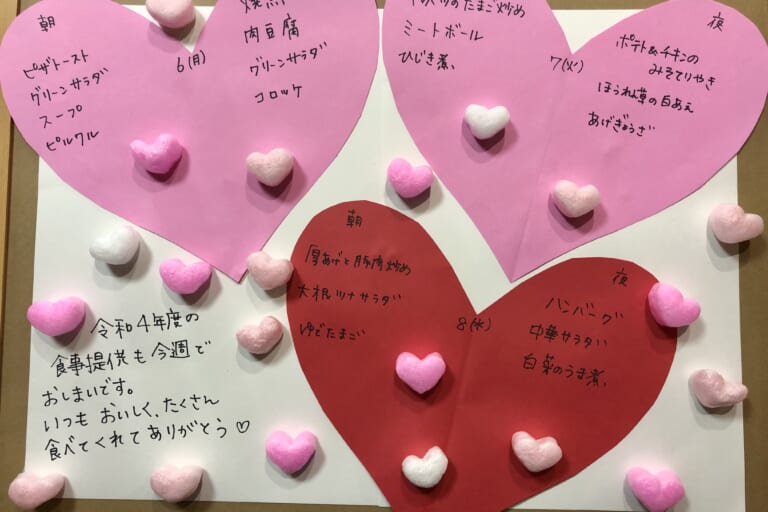 朝
ピザトースト
グリーンサラダ
スープ
ピルクル
6(月)
肉豆腐
グリーンサラダ
コロッケ
のたまご炒め
ミートボール
ひじき煮
7(火)
夜
ポテト&チキンの
みそてりやき
ほうれん草の白あえ
あげぎょうざ
朝
厚あげと豚肉炒め
大根ツナサラダ
ゆでたまご
8(水)
夜
ハンバーグ
中華サラダ
白菜のうま煮
令和4年度の
食事提供も今週で
おしまいです。
いつもおいしく、たくさん
食べてくれてありがとう♡